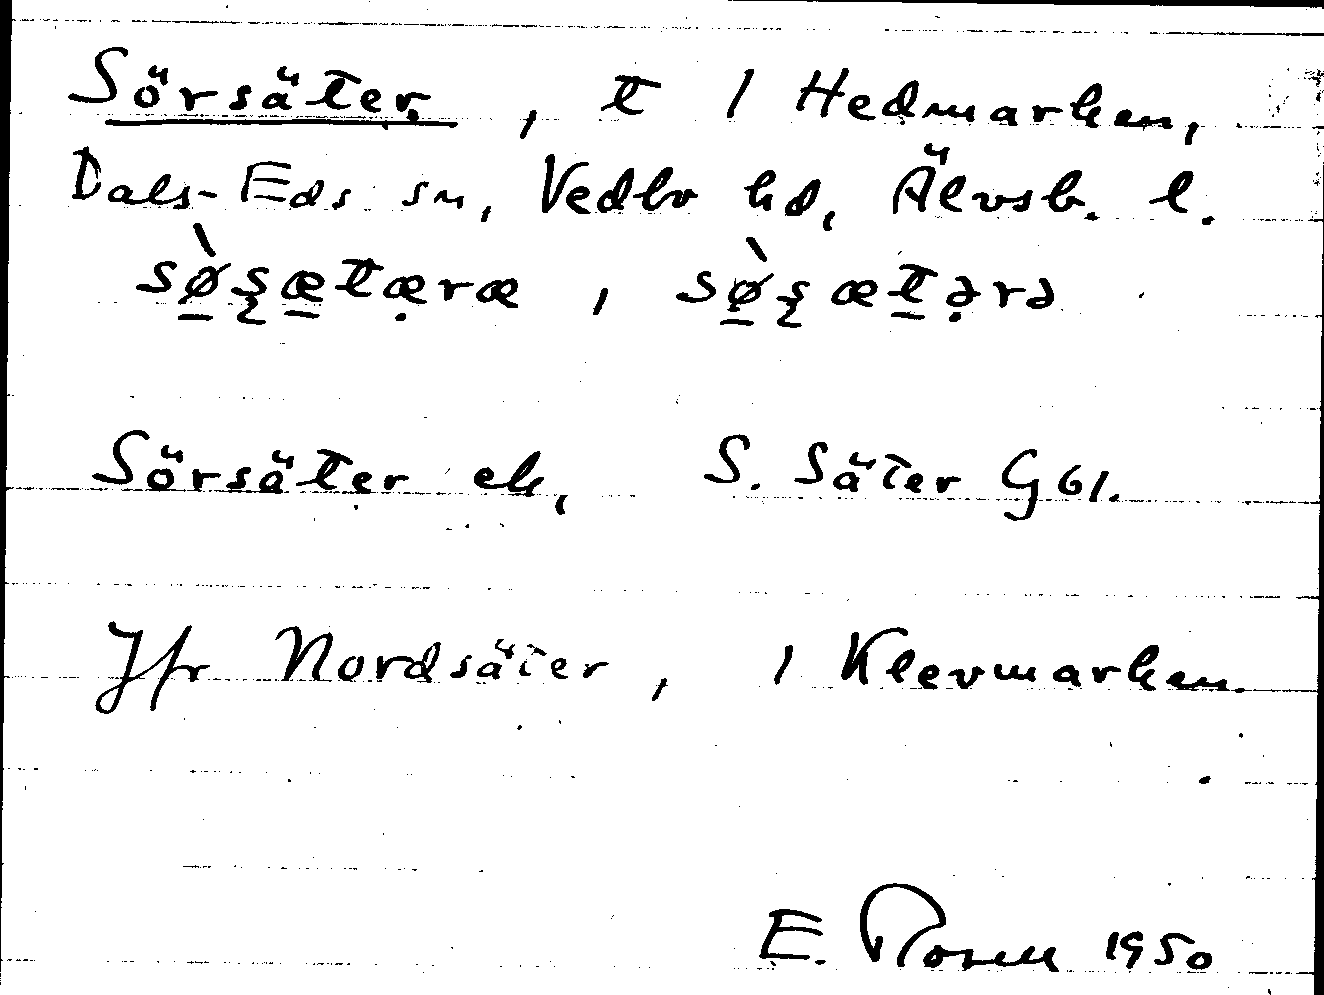 Sörsäter, t i Hedmarken,
Dals-Eds sn, Vedbo hd, Älvsb. l.
sø̀ʂætæ̣ræ, sø̀ʂætə̣rə
Sörsäter ek, S. Säter G 61.
Jfr Nordsäter, i Klevmarken.
E. Rosell 1950